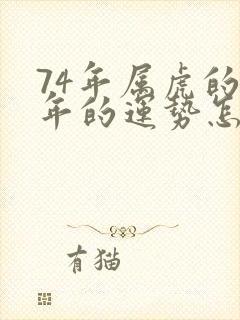 74年属虎的
年的运势怎
有猫